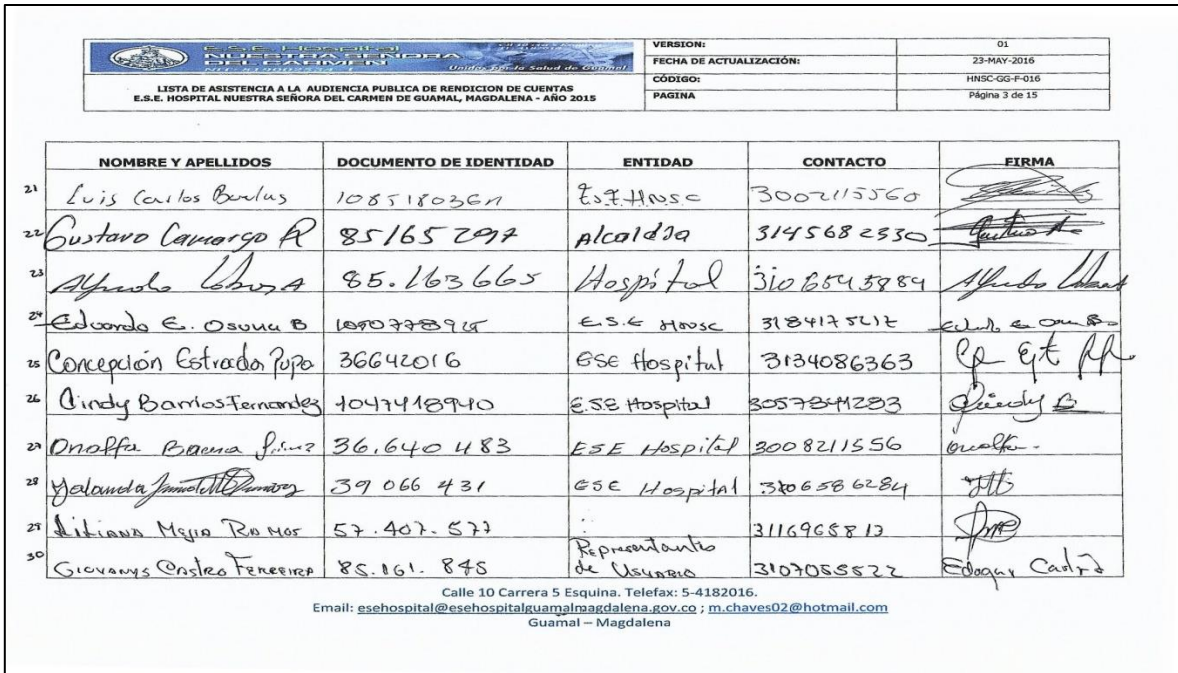 E.S.E. Hospital
NUESTRA SEÑORA
DEL CARMEN
Unidos por la Salud de Guamal.
LISTA DE ASISTENCIA A LA AUDIENCIA PUBLICA DE RENDICION DE CUENTAS
E.S.E. HOSPITAL NUESTRA SEÑORA DEL CARMEN DE GUAMAL, MAGDALENA - AÑO 2015
VERSION: 01
FECHA DE ACTUALIZACIÓN: 23-MAY-2016
CÓDIGO: HNSC-GG-F-016
PAGINA Página 3 de 15
NOMBRE Y APELLIDOS DOCUMENTO DE IDENTIDAD ENTIDAD CONTACTO FIRMA
21 Luis Carlos 3002115560
22 Gustavo Camargo R 85165297 Alcaldía 3145682330
23 Alfredo 85.163665 Hospital
24 Eduardo E. Osuna B E.S.E
25 Concepción Estrada Pupo 36642016 ESE Hospital 3134086363
26 Cindy Barrios Fernandez 1047418940 E.S.E Hospital 3057841283 Cindy B
27 36.640 483 ESE Hospital 3008211556
28 Yolanda 39 066 431 ESE Hospital 3106586284
29 Liliana Mejia Ramos 57.407.577 3116965813
30 Giovanys Castro Ferreira 85.161.845 Representante de Usuario 3107055522
Calle 10 Carrera 5 Esquina. Telefax: 5-4182016.
Email: esehospital@esehospitalguamalmagdalena.gov.co ; m.chaves02@hotmail.com
Guamal – Magdalena